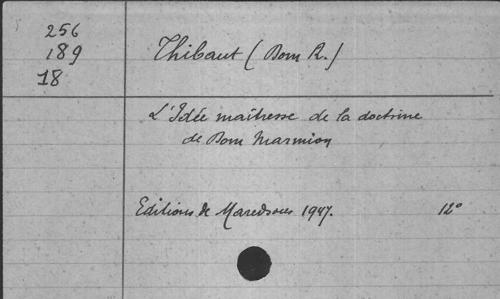 256
189
18
Thibaut (Dom R.)
L'Idée maîtresse de la doctrine
de Dom Marmion
Editions de Maredsous 1947. 12°